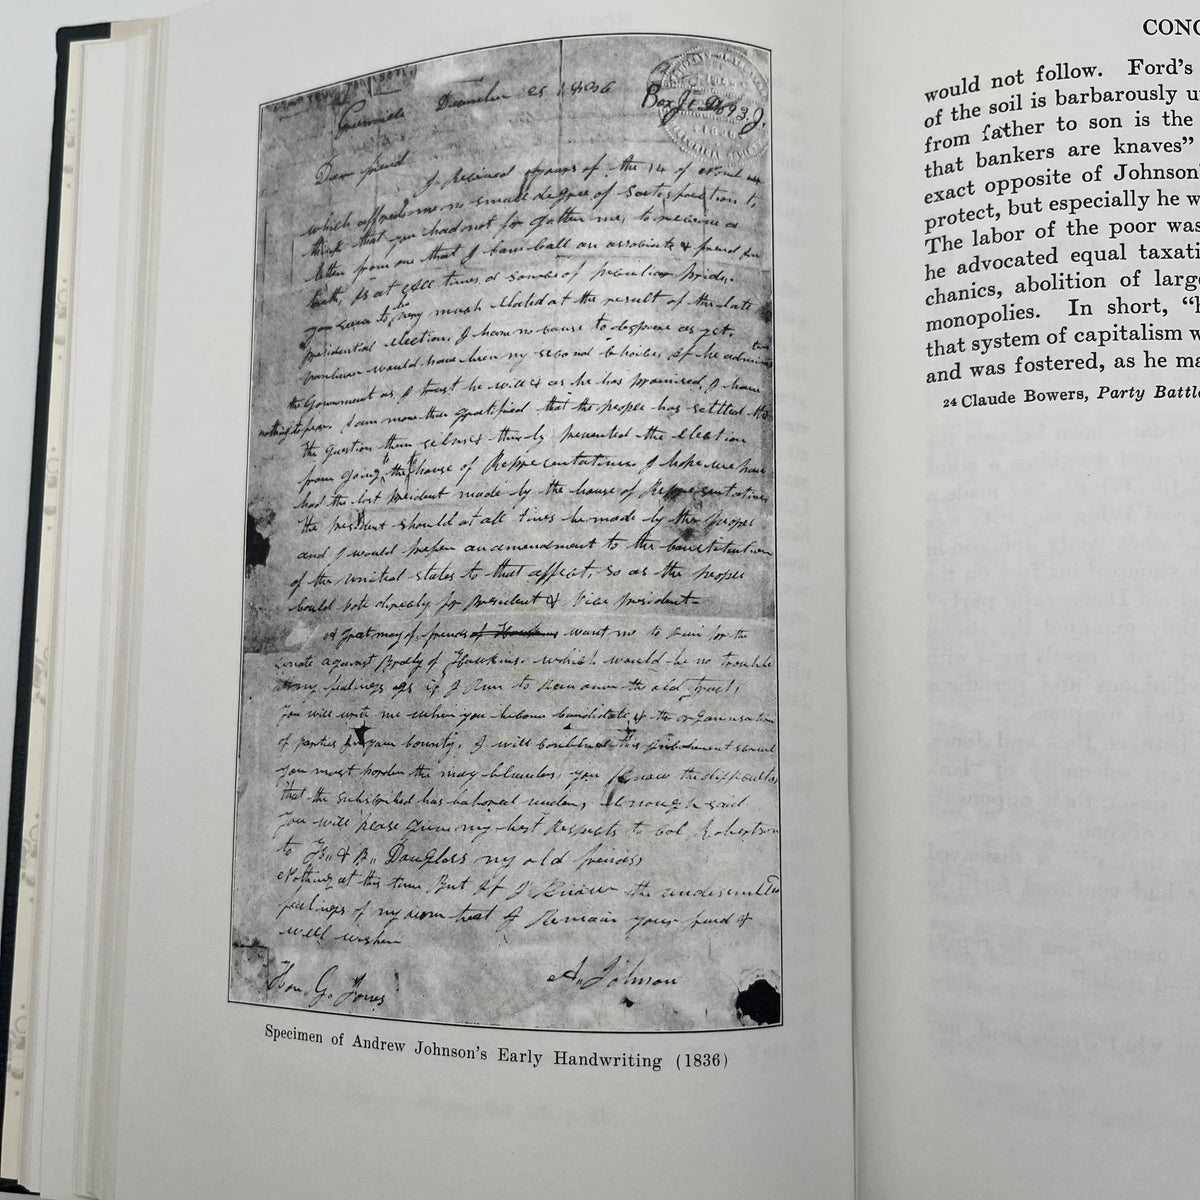 Greenville December 25 1836
Box J1 D693.J.
Dear friend
I Received yours of the 14 of
which affords me no small degree of Sattisfaction to
think that you had not for gotten me, to receive a
letter from one that I can call an associate & friend in
is at all times a source of peculiar pride,
you seem to be very much Elated at the result of the late
presidential election, I have no cause to despare as yet.
vanburen would have been my second Choice, if he admin
the Government as I trust he will & as he has promised, I have
nothing to fear. I am more than gratified that the people has settled the
the question them selves & thereby prevented the election
from going to the house of Representatives I hope we have
had the last president made by the house of Representatives
the president should at all times be made by the people
and I would prefer an amendment to the Constitution
of the united states to that affect, so as the people
Could vote directly for President & Vice President
A great many of friends of Hawkins want me to run for the
senate against Bradly of Hawkins, which would be no trouble
You will write me when you become Candidate & the organisation
of parties in your County. I will Conclude this
you must pardon the many blunders, you Know the difficulties
that the subscribed has labored under, Enough said
You will please Give my best Respects to Col Robertson
to & B,, Douglass my old friends
Nothing at this time But If I Know the undesembled
feelings of my own heart I Remain your friend &
well wisher
A,, Johnson
Hon,, G. Jones
Specimen of Andrew Johnson's Early Handwriting (1836)
CONC
would not follow. Ford's
of the soil is barbarously u
from father to son is the
that bankers are knaves"
exact opposite of Johnson'
protect, but especially he w
The labor of the poor was
he advocated equal taxati
chanics, abolition of large
monopolies. In short, "h
that system of capitalism w
and was fostered, as he ma
24 Claude Bowers, Party Battle